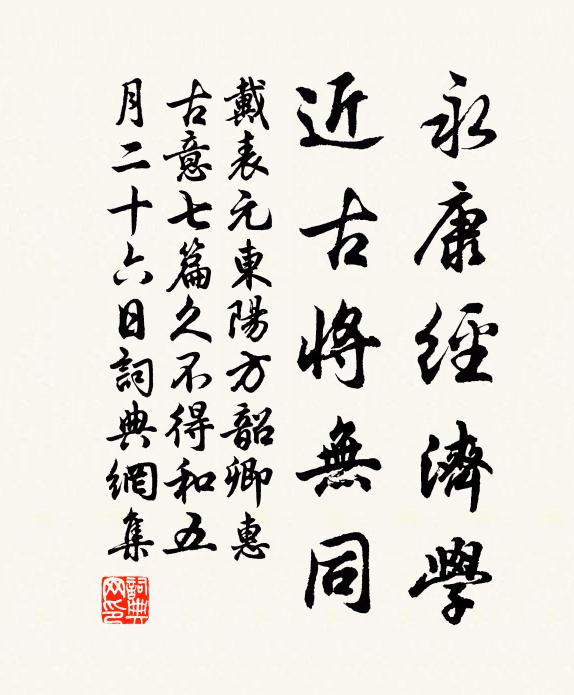 永康經濟學
近古將無同
戴表元東陽方韶卿惠
古意七篇久不得和五
月二十六日詞典網集
詞典網印